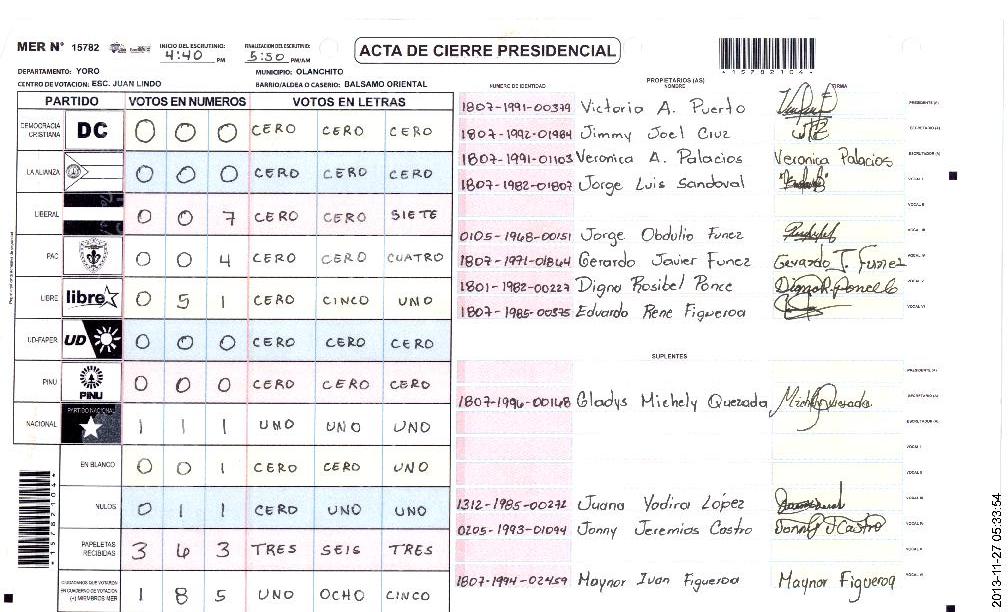 MER N° 15782
INICIO DEL ESCRUTINIO: 4:40 PM
FINALIZACION DEL ESCRUTINIO: 5:50 PM/AM
ACTA DE CIERRE PRESIDENCIAL
*15782104*
DEPARTAMENTO: YORO
MUNICIPIO: OLANCHITO
CENTRO DE VOTACION: ESC. JUAN LINDO
BARRIO/ALDEA O CASERIO: BALSAMO ORIENTAL
PARTIDO VOTOS EN NUMEROS VOTOS EN LETRAS
DEMOCRACIA CRISTIANA DC 0 0 0 CERO CERO CERO
LA ALIANZA 0 0 0 CERO CERO CERO
LIBERAL 0 0 7 CERO CERO SIETE
PAC 0 0 4 CERO CERO CUATRO
LIBRE libre 0 5 1 CERO CINCO UNO
UD-FAPER UD 0 0 0 CERO CERO CERO
PINU PINU 0 0 0 CERO CERO CERO
NACIONAL PARTIDO NACIONAL 1 1 1 UNO UNO UNO
EN BLANCO 0 0 1 CERO CERO UNO
NULOS 0 1 1 CERO UNO UNO
PAPELETAS RECIBIDAS 3 6 3 TRES SEIS TRES
CIUDADANOS QUE VOTARON EN CUADERNO DE VOTACION (+) MIEMBROS MER 1 8 5 UNO OCHO CINCO
*15782104*
NUMERO DE IDENTIDAD PROPIETARIOS (AS) NOMBRE FIRMA
1807-1991-00379 Victoria A. Puerto PRESIDENTE (A)
1807-1992-01984 Jimmy Joel Cruz SECRETARIO (A)
1807-1991-01103 Veronica A. Palacios Veronica Palacios ESCRUTADOR (A)
1807-1982-01807 Jorge Luis Sandoval VOCAL I
VOCAL II
0105-1968-00151 Jorge Obdulio Funez VOCAL III
1807-1971-01844 Gerardo Javier Funez Gerardo J. Funez VOCAL IV
1801-1982-00227 Digna Rosibel Ponce VOCAL V
1807-1985-00575 Eduardo Rene Figueroa VOCAL VI
SUPLENTES
PRESIDENTE (A)
1807-1996-00168 Gladys Michely Quezada Michely Quezada SECRETARIO (A)
ESCRUTADOR (A)
VOCAL I
VOCAL II
1312-1985-00272 Juana Yadira López VOCAL III
0205-1993-01094 Jonny Jeremias Castro Jonny J Castro VOCAL IV
VOCAL V
1807-1994-02459 Maynor Ivan Figueroa Maynor Figueroa VOCAL VI
2013-11-27 05:33:54